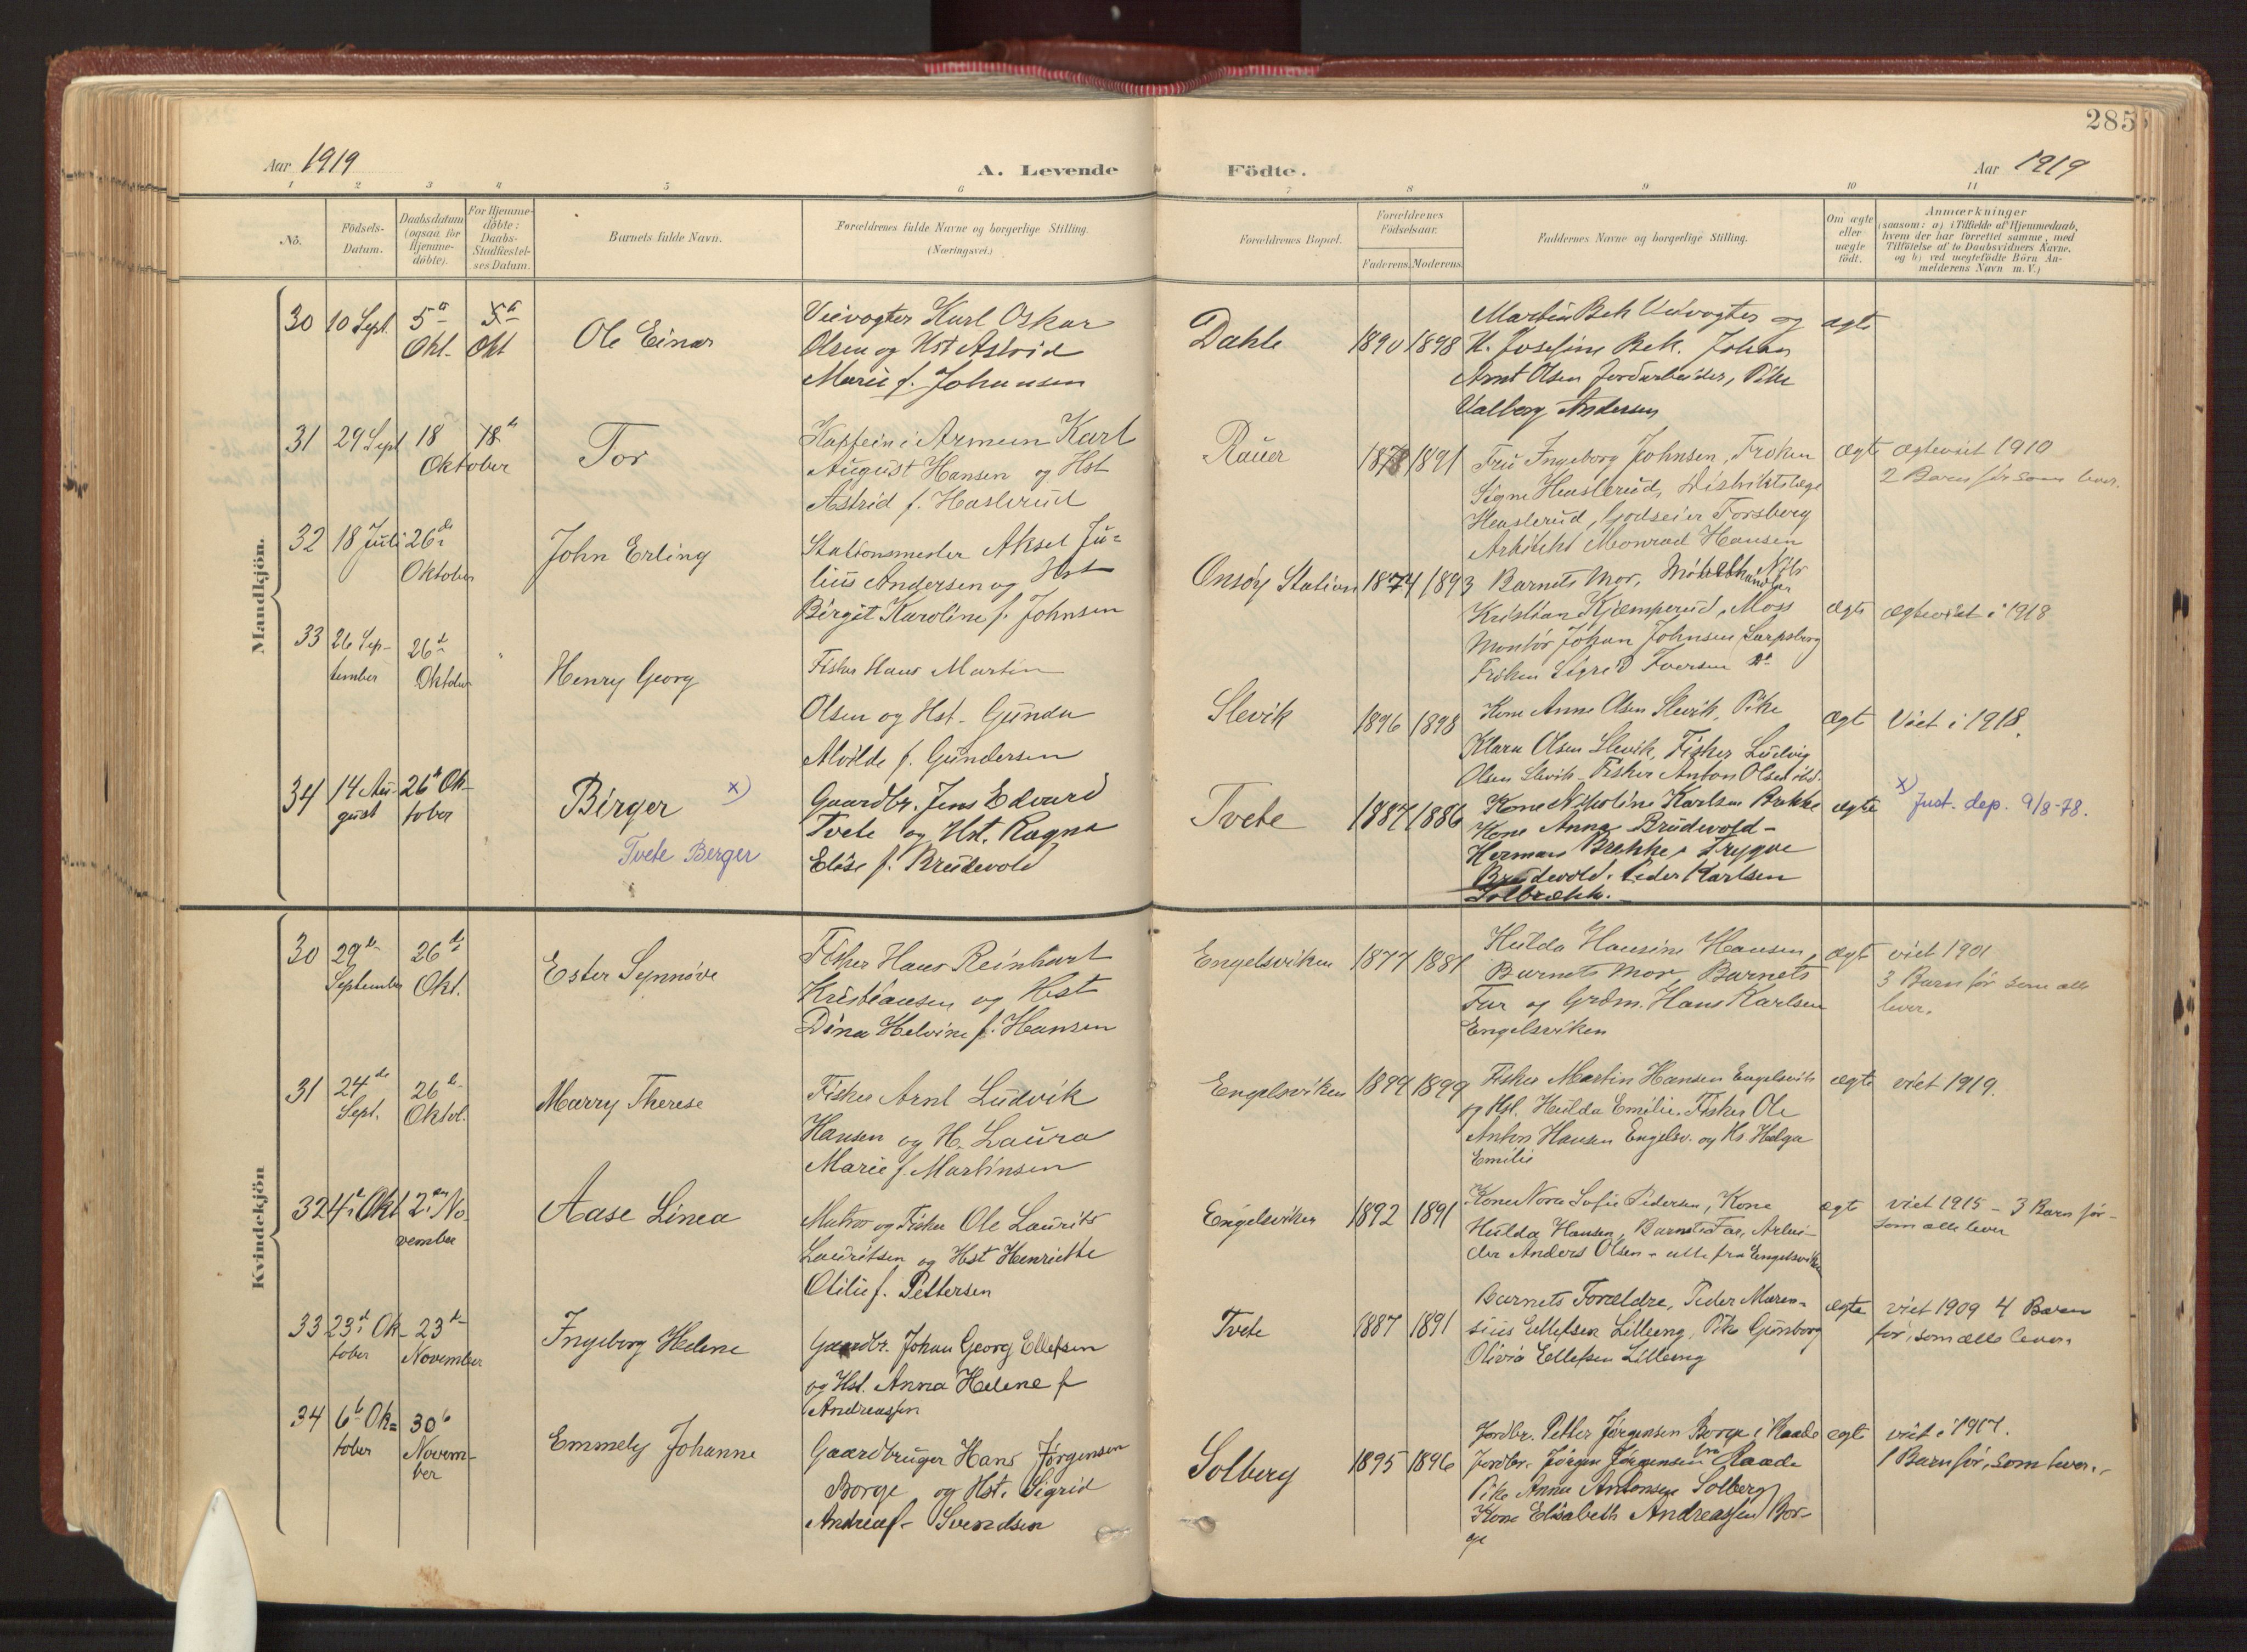 285
Aar 1919
A. Levende
Födte.
Aar 1919
1 2 3 4 5 6 7 8 9 10 11
No.
Födsels-
Datum.
Daabsdatum
(ogsaa for
Hjemme-
döbte).
For Hjemme-
döbte:
Daabs-
Stadfæstel-
ses Datum.
Barnets fulde Navn.
Forældrenes fulde Navne og borgerlige Stilling.
(Næringsvei.)
Forældrenes Bopæl.
Forældrenes
Födselsaar.
Faderens. Moderens.
Faddernes Navne og borgerlige Stilling.
Om ægte
eller
uægte
födt.
Anmærkninger
(saasom: a) i Tilfælde af Hjemmedaab,
hvem der har forrettet samme, med
Tilföielse af to Daabsvidners Navne,
og b) ved uægtefödte Börn An-
melderens Navn m. V.)
Mandkjön.
30
10 Sept.
5te
Okt.
5te
Okt
Ole Einar
Veivogter Karl Oskar
Olsen og Hst Astrid
Marie f. Johansen
Dahle
1890 1898
Martin Bek Veivogter og
H. Josefine Bek. Johan
Arnt Olsen Jordarbeider, Pike
Valborg Andersen
ægte
31
29 Sept
18
Oktober
18de
Tor
Kaptein i Armeen Karl
August Hansen og Hst
Astrid f. Haslerud
Rauer
1878 1891
Fru Ingeborg Johnsen, Frøken
Signe Haslerud, Distriktslæge
Haslerud, Godseier Forsberg
Arkitekt Monrad Hansen
ægte
ægteviet 1910
2 Barn før som lever.
32
18 Juli
26de
Oktober
John Erling
Stationsmester Aksel Ju-
lius Andersen og Hst
Birgit Karoline f. Johnsen
Onsøy Station
1874 1893
Barnets Mor, Møbelhandler Nils
Kristian Kjemperud, Moss
Montør Johan Johnsen Sarpsborg
Frøken Sigrid Iversen
ægte
ægteviet i 1918
33
26 Sep-
tember
26de
Oktober
Henry Georg
Fisker Hans Martin
Olsen og Hst. Gunda
Alvilde f. Gundersen
Slevik
1896 1898
Kone Anne Olsen Slevik, Pike
Klara Olsen Slevik, Fisker Ludvig
Olsen Slevik - Fisker Anton Olsen ibd.
ægte
Viet i 1918.
34
14 Au-
gust
26de Ok-
tober
Birger x)
Tvete Berger
Gaardbr. Jens Edvard
Tvete og Hst. Ragna
Elise f. Brudevold
Tvete
1887 1886
Kone Nikoline Karlsen Brekke
Kone Anna Brudevold -
Herman Brekke, Trygve
Brudevold. Peder Karlsen
Solbrække. -
ægte
x) Just. dep. 9/8-78.
Kvindekjön
30
29de
September
26de
Okt.
Ester Synnöve
Fisker Hans Reinhart
Kristiansen og Hst
Dina Helvine f. Hansen
Engelsviken
1877 1881
Hulda Hansine Hansen,
Barnets Mor, Barnets
Far og Grdm. Hans Karlsen
Engelsviken
ægte
viet 1901
3 Barn før som alle
lever.
31
24de
Sept.
26de
Oktob.
Marry Therese
Fisker Arnt Ludvik
Hansen og H. Laura
Marie f. Martinsen
Engelsviken
1894 1899
Fisker Martin Hansen Engelsvik
og Hst. Hulda Emilie. Fisker Ole
Anton Hansen Engelsv. og Hs Helga
Emilie
ægte
viet 1919.
32
4de Okt
2den No-
vember
Aase Linea
Matros og Fisker Ole Laurits
Lauritsen og Hst Henriette
Otilie f. Pettersen
Engelsviken
1892 1891
Kone Nora Sofie Pedersen, Kone
Hulda Hansen, Barnets Far, Arbei-
der Anders Olsen - alle fra Engelsviken
ægte
viet 1915 - 3 Barn før -
som alle lever
33
23de Ok-
tober
23de
November
Ingeborg Helene
Gaardbr. Johan Georg Ellefsen
og Hst. Anna Helene f
Andreassen
Tvete
1887 1891
Barnets Forældre, Peder Maren-
sius Ellefsen Lilleeng, Pike Gunborg
Olivia Ellefsen Lilleeng
ægte
viet 1909 4 Barn
før, som alle lever.
34
6te Ok-
tober
30te
Novem-
ber
Emmely Johanne
Gaardbruger Hans Jørgensen
Borge og Hst. Sigrid
Andrea f. Svendsen
Solberg
1895 1896
Jordbr. Petter Jørgensen Borge i Raade
Jordbr. Jørgen Jørgensen fra Raade
Pike Anna Antonsen Solberg
Kone Elisabeth Andreassen Bor-
ge
ægte
viet i 1917.
1 Barn før, som lever.